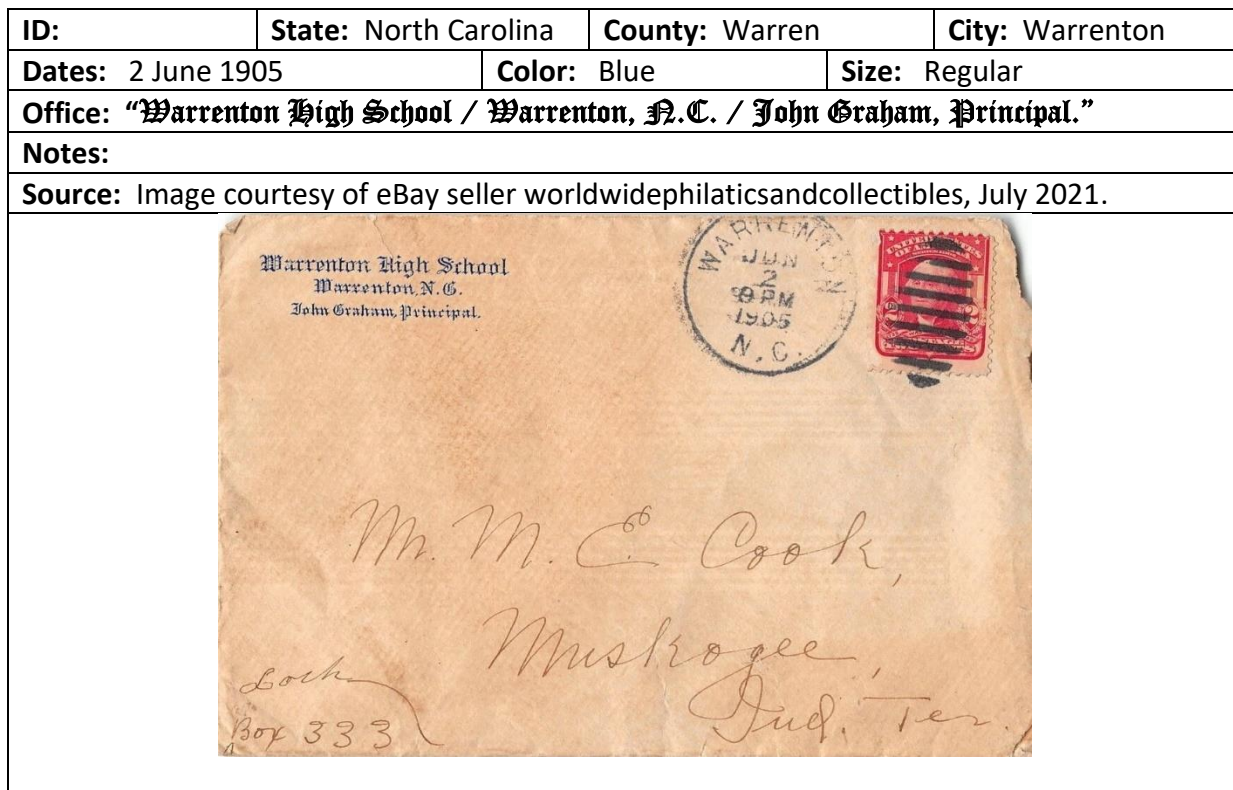 ID: State: North Carolina County: Warren City: Warrenton
Dates: 2 June 1905 Color: Blue Size: Regular
Office: “Warrenton High School / Warrenton, N.C. / John Graham, Principal.”
Notes:
Source: Image courtesy of eBay seller worldwidephilaticsandcollectibles, July 2021.
Warrenton High School
Warrenton, N.C.
John Graham, Principal.
WARRENTON
JUN
2
PM
1905
N.C.
UNITED STATES
OF AMERICA
Mr. M. E. Cook,
Muskogee,
Ind. Ter.
Lock
Box 333